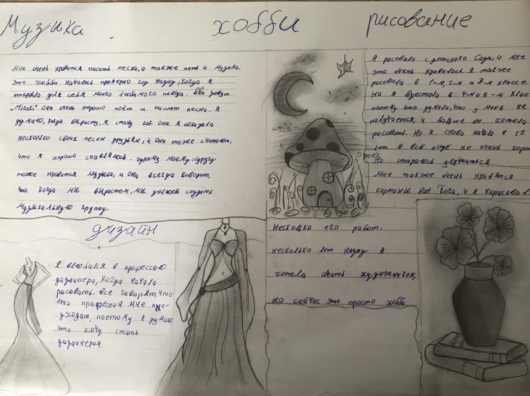 Музыка
хобби
рисование
Мне очень нравится писать песни, а также петь и музыка.
Это хобби началось примерно год назад, когда я
открыла для себя моего любимого певца. Его зовут
Она очень хорошо поёт и пишет песни. Я
думаю, когда вырасту, я стану как она. Я показала
несколько своих песен друзьям, и они тоже считают,
что я хорошо справляюсь. Одному моему другу
тоже нравится музыка, и он всегда говорит,
что когда мы вырастем, мы должны создать
музыкальную группу.
Я рисовала с детского сада, и мне
это очень нравилось. Я также
рисовала в 1-м, 2-м и 3-м классе.
Но я бросила в 4-м и 5-м классе
потому что думала, что у меня не
получается, и больше не хотела
рисовать. Но я снова начала в 6
Я всё ещё не очень хорошо
Но стараюсь улучшиться
Мне также очень нравятся
картины Ван Гога, и я нарисовала
несколько его работ.
несколько лет назад я
хотела стать художником,
но сейчас это просто хобби
дизайн
Я влюбился в профессию
дизайнера, когда начала
рисовать. Все говорят, что
эта профессия мне под-
ходит, поэтому я думаю
что хочу стать
дизайнером